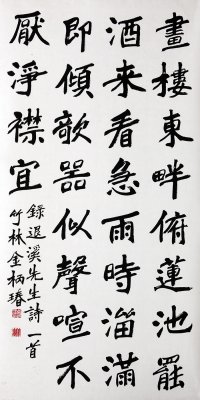 畫樓東畔俯蓮池罷
酒来看急雨時溜滿
即傾欹器似聲喧不
厭淨襟宜
錄退溪先生詩一首
竹林金柄瑃